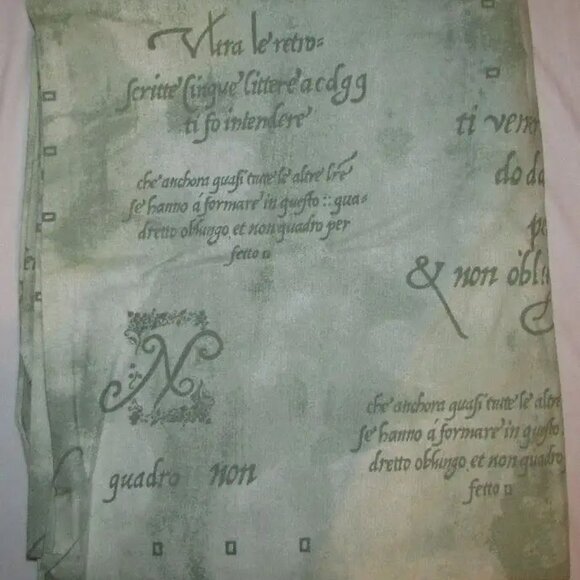 Ultra le retro=
scritte Cinque littere a c d g q
ti fo intendere
che anchora quasi tutte le altre lr̃e
se hanno á formare in questo :: qua-
dretto oblungo et non quadro per
fetto □
ti ven
do da
& non obl
N
che anchora quasi tutte le altre
se hanno á formare in questo
dretto oblungo et non quadro
fetto □
quadro non